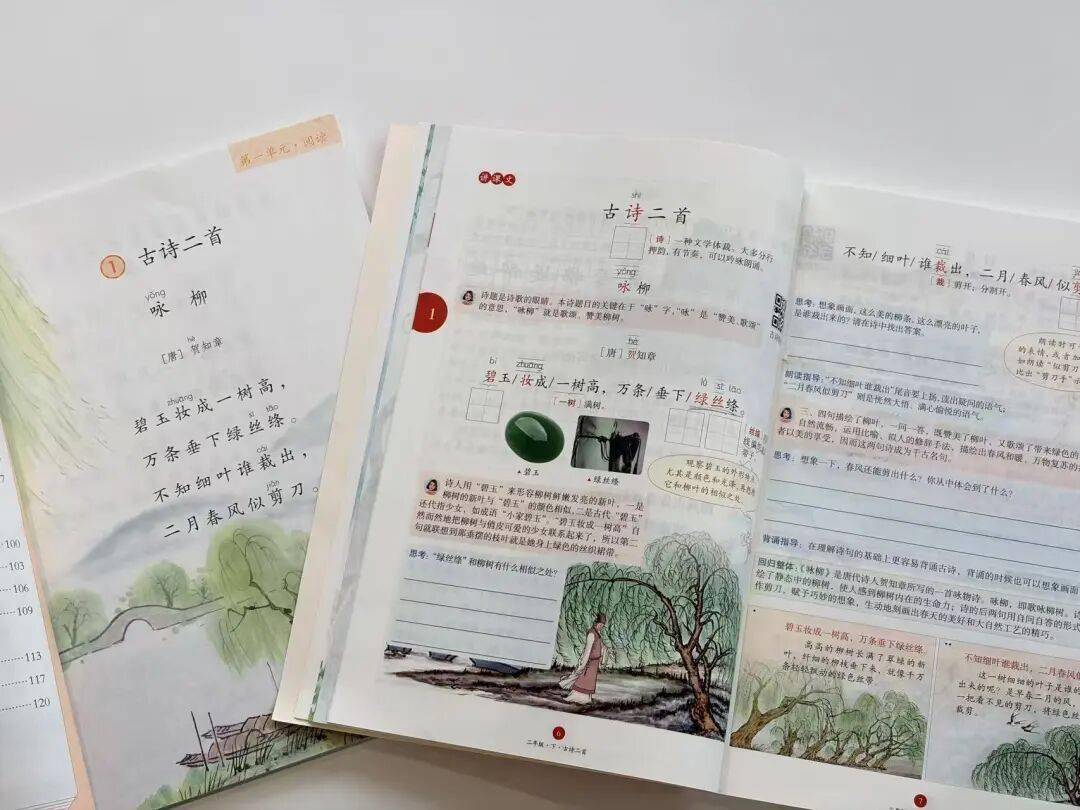 第一单元·阅读
1 古诗二首
yǒng
咏 柳
hè
[唐] 贺知章
zhuāng
碧玉妆成一树高，
sī tāo
万条垂下绿丝绦。
cái
不知细叶谁裁出，
jiǎn
二月春风似剪刀。
100
103
106
109
113
117
120
讲课文
shī
古诗二首
[诗] 一种文学体裁，大多分行
押韵，有节奏，可以吟咏朗诵。
yǒng
咏 柳
1
诗题是诗歌的眼睛。本诗题目的关键在于“咏”字，“咏”是“赞美、歌颂”
的意思，“咏柳”就是歌颂、赞美柳树。
hè
[唐] 贺知章
bì zhuāng
碧玉/妆成/一树高，万条/垂下/绿丝绦。
lǜ sī tāo
[一树] 满树。
碧玉
绿丝绦
观察碧玉的外形特点
尤其是颜色和光泽，再想想
它和柳叶的相似之处
诗人用“碧玉”来形容柳树鲜嫩发亮的新叶，一是
柳树的新叶与“碧玉”的颜色相似，二是古代“碧玉”
还代指少女，如成语“小家碧玉”。“碧玉妆成一树高”自
然而然地把柳树与俏皮可爱的少女联系起来了，所以第二
句就联想到那垂摆的枝叶就是她身上绿色的丝织裙带。
思考：“绿丝绦”和柳树有什么相似之处？
6
二年级·下·古诗二首
cái
不知/细叶/谁裁出，二月/春风/似剪
[裁] 剪开，分割开。
思考：想象画面，这么美的柳条，这么漂亮的叶子，
是谁裁出来的？请在诗中找出答案。
朗读时可
的表情，或者加
如朗读“似剪刀
比出“剪刀”手
朗读指导：“不知细叶谁裁出”尾音要上扬，读出疑问的语气；
“二月春风似剪刀”则是恍然大悟、满心愉悦的语气。
三、四句描绘了柳叶，一问一答，既赞美了柳叶，又歌颂了带来绿色的
自然流畅，运用比喻、拟人的修辞手法，描绘出春风和暖，万物复苏的
者以美的享受，因而这两句诗成为千古名句。
思考：想象一下，春风还能剪出什么？你从中体会到了什么？
背诵指导：在理解诗句的基础上更容易背诵古诗，背诵的时候也可以想象画面
回归整体：《咏柳》是唐代诗人贺知章所写的一首咏物诗。咏柳，即歌咏柳树。
绘了静态中的柳树，使人感到柳树内在的生命力；诗的后两句用自问自答的形式
作剪刀，赋予巧妙的想象，生动地刻画出春天的美好和大自然工艺的精巧。
碧玉妆成一树高，万条垂下绿丝绦。
高高的柳树长满了翠绿的新
叶，纤细的柳枝垂下来，就像千万
条轻轻飘动的绿色丝带。
不知细叶谁裁出，二月春风
这一树细细的叶子是谁的
出来的呢？是早春二月的风，
一把看不见的剪刀，将绿色丝
裁剪。
7